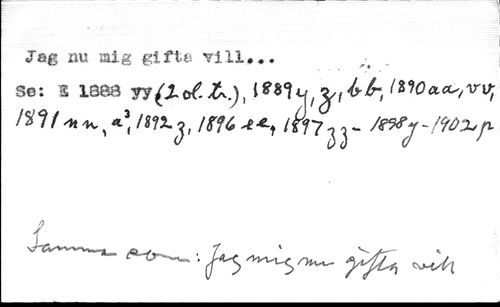 Jag nu mig gifta vill...
Se: E 1888 yy (2 ol. tr.), 1889 y, z, bb, 1890 aa, vv,
1891 nn, a³, 1892 z, 1896 ee, 1897 zz - 1898 y - 1902 p
Samma som: Jag mig nu gifta vill